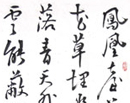 鳳凰臺
花草埋
落青天外
雲能蔽